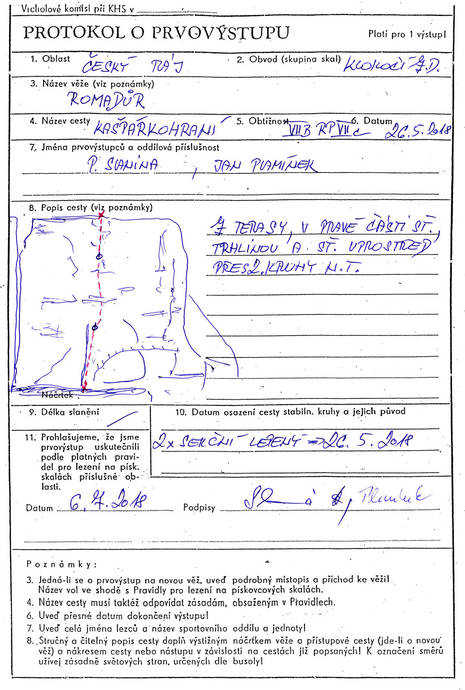 Vrcholové komisi při KHS v
PROTOKOL O PRVOVÝSTUPU Platí pro 1 výstup!
1. Oblast ČESKÝ RÁJ 2. Obvod (skupina skal) KLOKOČÍ J.D.
3. Název věže (viz poznámky)
ROMADŮR
4. Název cesty KAŠPÁRKOHRANÍ 5. Obtížnost VIIB RP VIIc 6. Datum 26.5.2018
7. Jména prvovýstupců a oddílová příslušnost
P. SLANINA, JAN PLAMÍNEK
8. Popis cesty (viz poznámky)
Z TERASY, V PRAVÉ ČÁSTI ST.,
TRHLINOU A ST. UPROSTŘED
PŘES 2. KRUHY N.T.
Náčrtek
9. Délka slanění
10. Datum osazení cesty stabiln. kruhy a jejich původ
2x SEKČNÍ LEPENÝ ⇒ 26.5.2018
11. Prohlašujeme, že jsme
prvovýstup uskutečnili
podle platných pravi-
del pro lezení na písk.
skalách příslušné ob-
lasti.
Datum 6.7.2018 Podpisy
Poznámky:
3. Jedná-li se o prvovýstup na novou věž, uveď podrobný místopis a příchod ke věži!
Název vol ve shodě s Pravidly pro lezení na pískovcových skalách.
4. Název cesty musí taktéž odpovídat zásadám, obsaženým v Pravidlech.
6. Uveď přesné datum dokončení výstupu!
7. Uveď celá jména lezců a název sportovního oddílu a jednoty!
8. Stručný a čitelný popis cesty doplň výstižným náčrtkem věže a přístupové cesty (jde-li o novou
věž) a nákresem cesty nebo nástupu v závislosti na cestách již popsaných! K označení směrů
užívej zásadně světových stran, určených dle busoly!